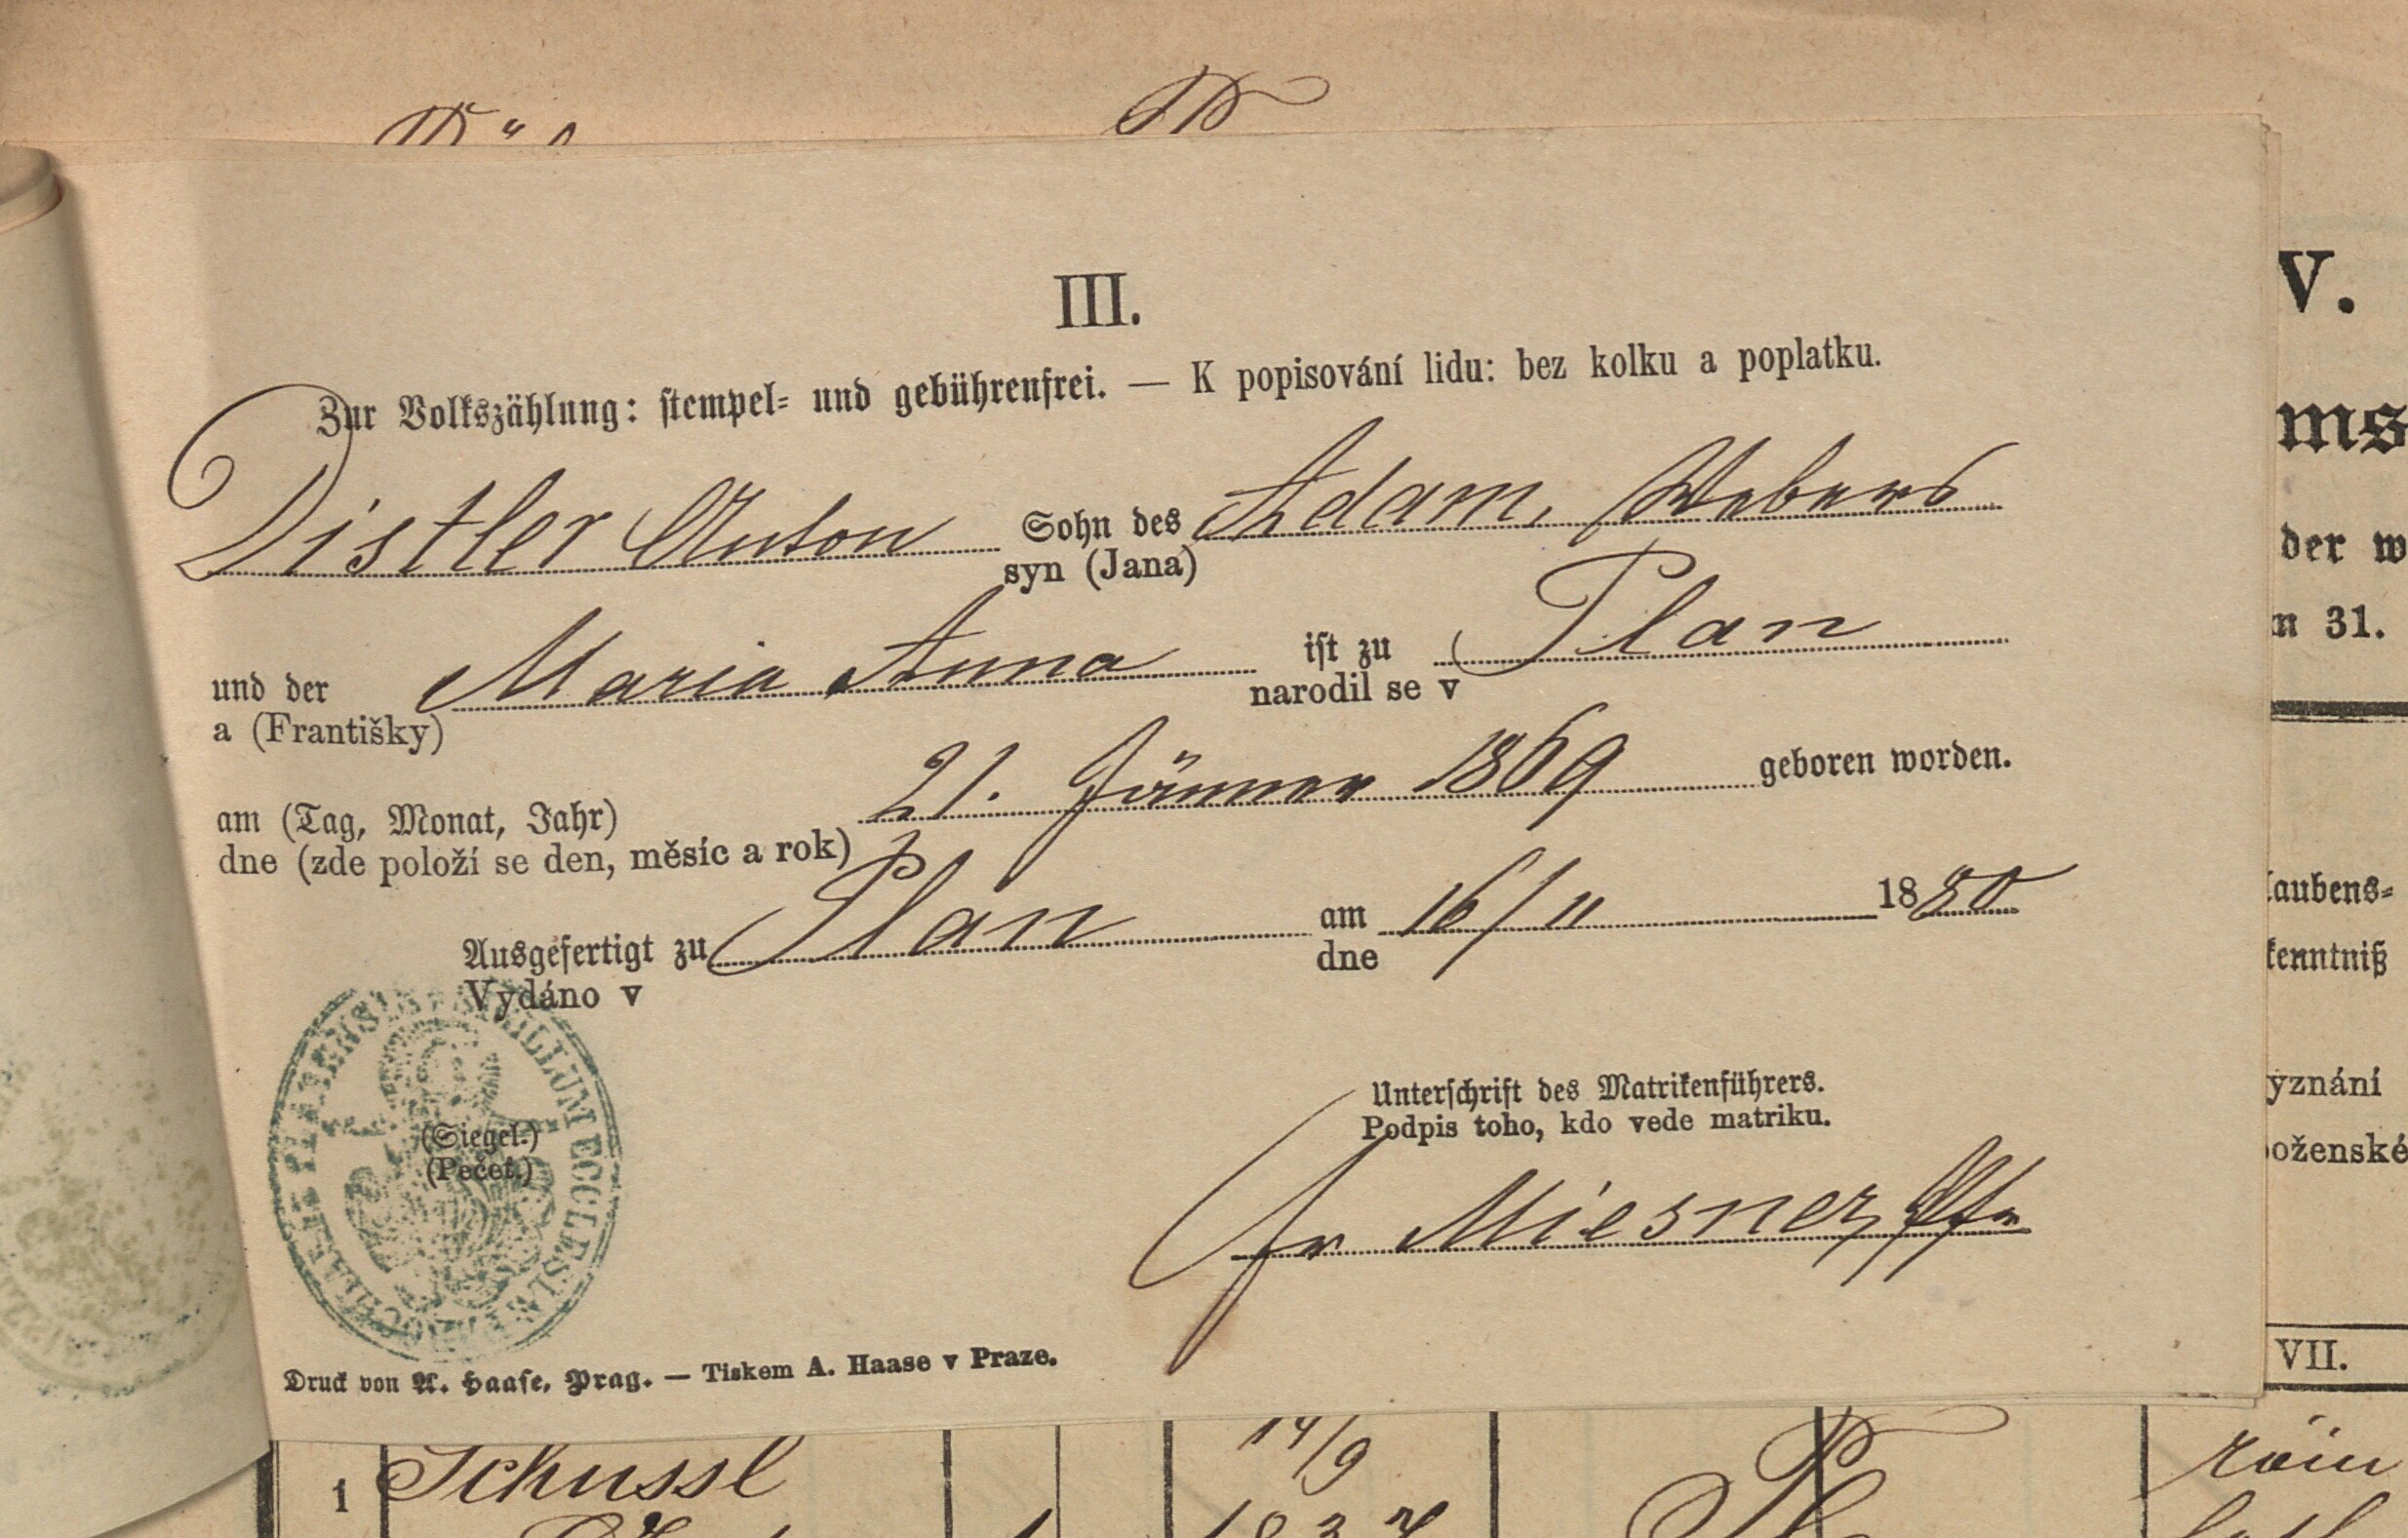 III.
Zur Volkszählung: stempel- und gebührenfrei. — K popisování lidu: bez kolku a poplatku.
Distler Anton Sohn des Adam, Webers
syn (Jana)
und der Maria Anna ist zu Plan
a (Františky) narodil se v
am (Tag, Monat, Jahr) 21. Jänner 1869 geboren worden.
dne (zde položí se den, měsíc a rok)
Ausgefertigt zu Plan am 16/11 1880
Vydáno v dne
SIGILLUM ECCLESIÆ PAROCHIALIS PLANENSIS
(Siegel.)
(Pečeť.)
Unterschrift des Matrikenführers.
Podpis toho, kdo vede matriku.
Fr Miesner, Pfr
Druck von A. Haase, Prag. — Tiskem A. Haase v Praze.
V.
ms
der w
n 31.
laubens-
kenntniß
yznání
oženské
VII.
1 Schussl 14/9 röm
1837